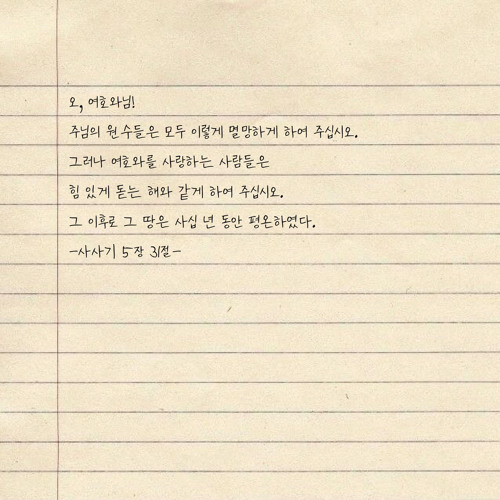 오, 여호와님!
주님의 원수들은 모두 이렇게 멸망하게 하여 주십시오.
그러나 여호와를 사랑하는 사람들은
힘 있게 돋는 해와 같게 하여 주십시오.
그 이후로 그 땅은 사십 년 동안 평온하였다.
-사사기 5장 31절-